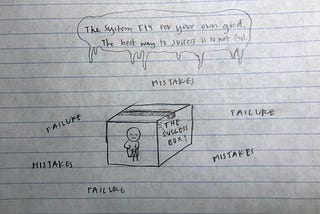 The System IIS for your own good.
The best way to success is to not fail.
MISTAKES
FAILURE
FAILURE
THE
SUCCESS
BOX!
MISTAKES
MISTAKES
FAILURE